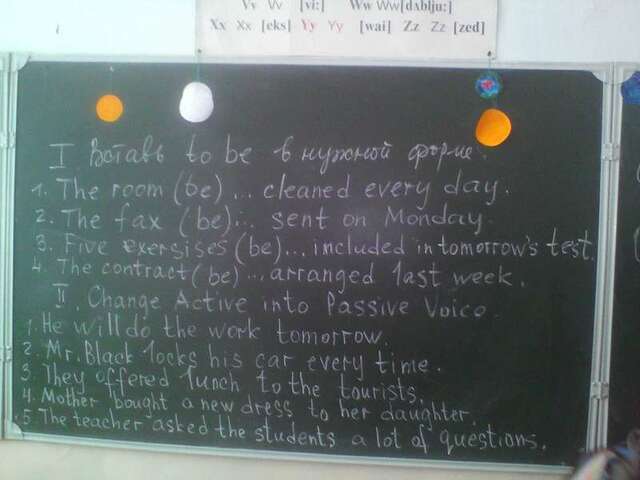 Vv Vv [vi:] Ww Ww [dʌblju:]
Xx Xx [eks] Yy Yy [wai] Zz Zz [zed]
I Вставь to be в нужной форме.
1. The room (be)... cleaned every day.
2. The fax (be)... sent on Monday.
3. Five exersises (be)... included in tomorrow's test.
4. The contract (be)... arranged last week.
II. Change Active into Passive Voice.
1. He will do the work tomorrow.
2. Mr. Black locks his car every time.
3. They offered lunch to the tourists.
4. Mother bought a new dress to her daughter.
5. The teacher asked the students a lot of questions.